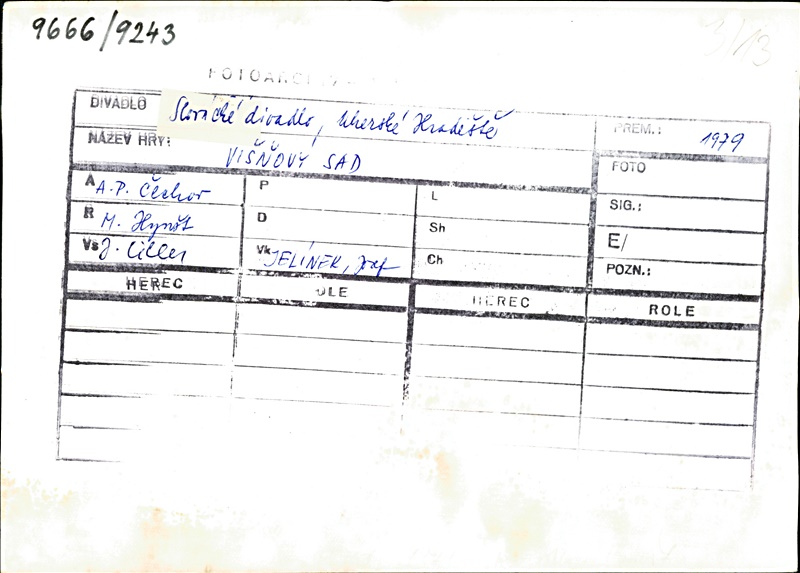 9666/9243
3/13
FOTOARCHIV
DIVADLO Slovácké divadlo, Uherské Hradiště
PREM.: 1979
NÁZEV HRY: VIŠŇOVÝ SAD
FOTO
A A. P. Čechov
P
L
SIG.:
R M. Hynšt
D
Sh
E/
Vs J. Ciller
Vk JELÍNEK, Josef
Ch
POZN.:
HEREC ROLE HEREC ROLE